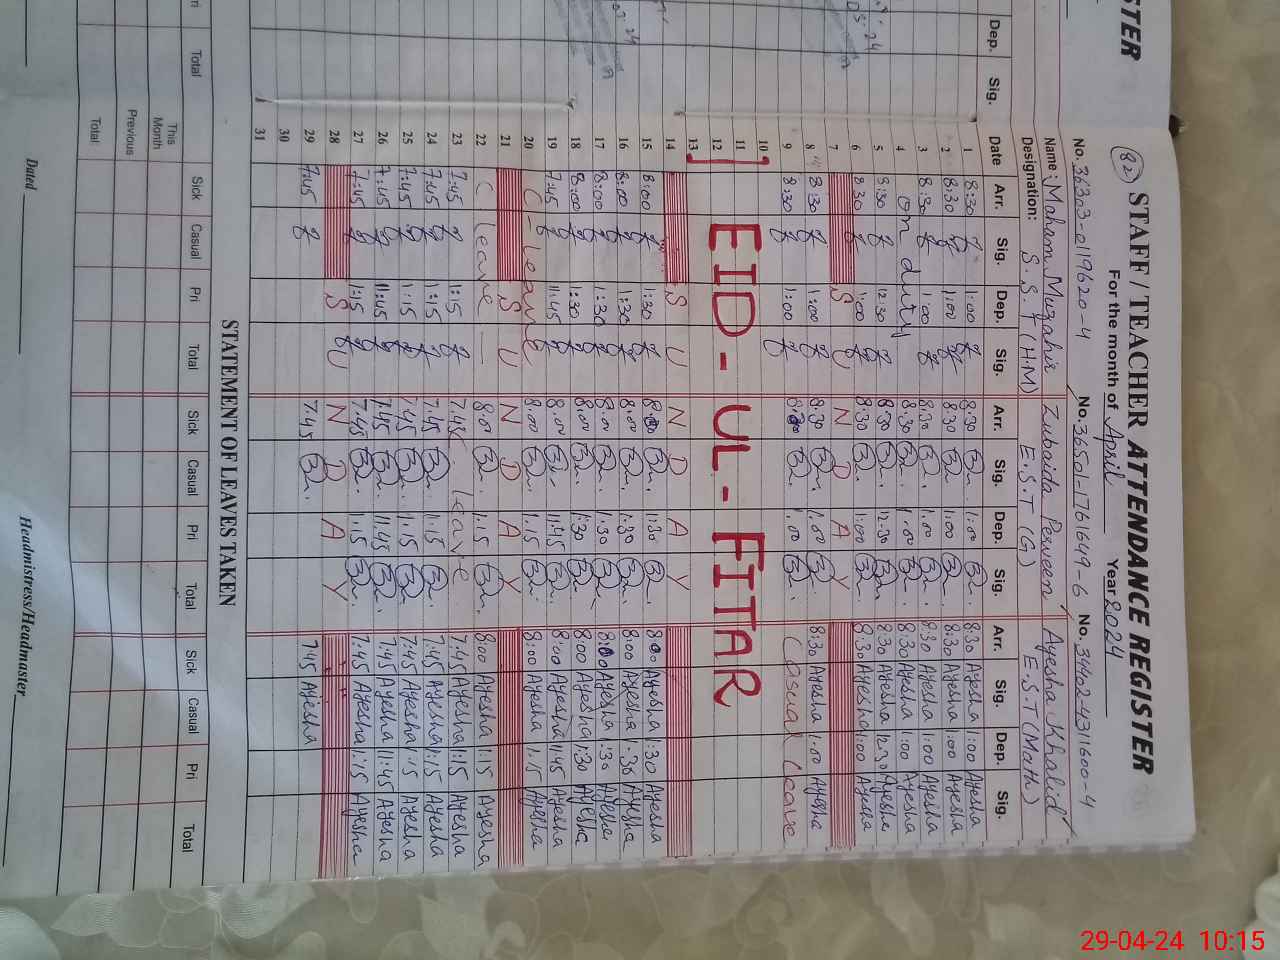 STER
Dep. Sig.
Total
82 STAFF / TEACHER ATTENDANCE REGISTER
For the month of April Year 2024
No. 36303-0119620-4 No. 36501-1761649-6 No. 34402-4311600-4
Name: Maham Muzahir Zubaida Perveen Ayesha Khalid
Designation: S.S.T (H.M) E.S.T (G) E.S.T (Math)
Date Arr. Sig. Dep. Sig. Arr. Sig. Dep. Sig. Arr. Sig. Dep. Sig.
1 8:30 1:00 8:30 1:00 8:30 Ayesha 1:00 Ayesha
2 8:30 1:00 8:30 1:00 8:30 Ayesha 1:00 Ayesha
3 8:30 1:00 8:30 1.00 8:30 Ayesha 1:00 Ayesha
4 on duty 8:30 1.00 8:30 Ayesha 1:00 Ayesha
5 8:30 12:30 8:30 12:30 8:30 Ayesha 12:30 Ayesha
6 8:30 1:00 8:30 1:00 8:30 Ayesha 1:00 Ayesha
7 S U N D A Y
8 8:30 1:00 8:30 1.00 8:30 Ayesha 1:00 Ayesha
9 8:30 1:00 8:30 1.00 Casual Leave
10
11 EID - UL - FITAR
12
13
14 S U N D A Y
15 8:00 1:30 8:00 1:30 8:00 Ayesha 1:30 Ayesha
16 8:00 1:30 8.00 1:30 8:00 Ayesha 1:30 Ayesha
17 8:00 1:30 8.00 1.30 8:00 Ayesha 1:30 Ayesha
18 8:00 1:30 8.00 1:30 8:00 Ayesha 1:30 Ayesha
19 7:45 11:45 8.00 11:45 8:00 Ayesha 11:45 Ayesha
20 C-Leave 8.00 1.15 8:00 Ayesha 1:15 Ayesha
21 S U N D A Y
22 C Leave 8.00 1.15 8:00 Ayesha 1:15 Ayesha
23 7:45 1:15 7.45 Leave 7:45 Ayesha 1:15 Ayesha
24 7:45 1:15 7.45 1.15 7:45 Ayesha 1:15 Ayesha
25 7:45 1:15 7.45 1.15 7:45 Ayesha 1:15 Ayesha
26 7:45 11:45 7.45 11.45 7:45 Ayesha 11:45 Ayesha
27 7:45 1:15 7.45 1.15 7:45 Ayesha 1:15 Ayesha
28 S U N D A Y
29 7:45 7.45 7:45 Ayesha
30
31
STATEMENT OF LEAVES TAKEN
Sick Casual Pri Total Sick Casual Pri Total Sick Casual Pri Total
This Month
Previous
Total
Dated Headmistress/Headmaster
29-04-24 10:15